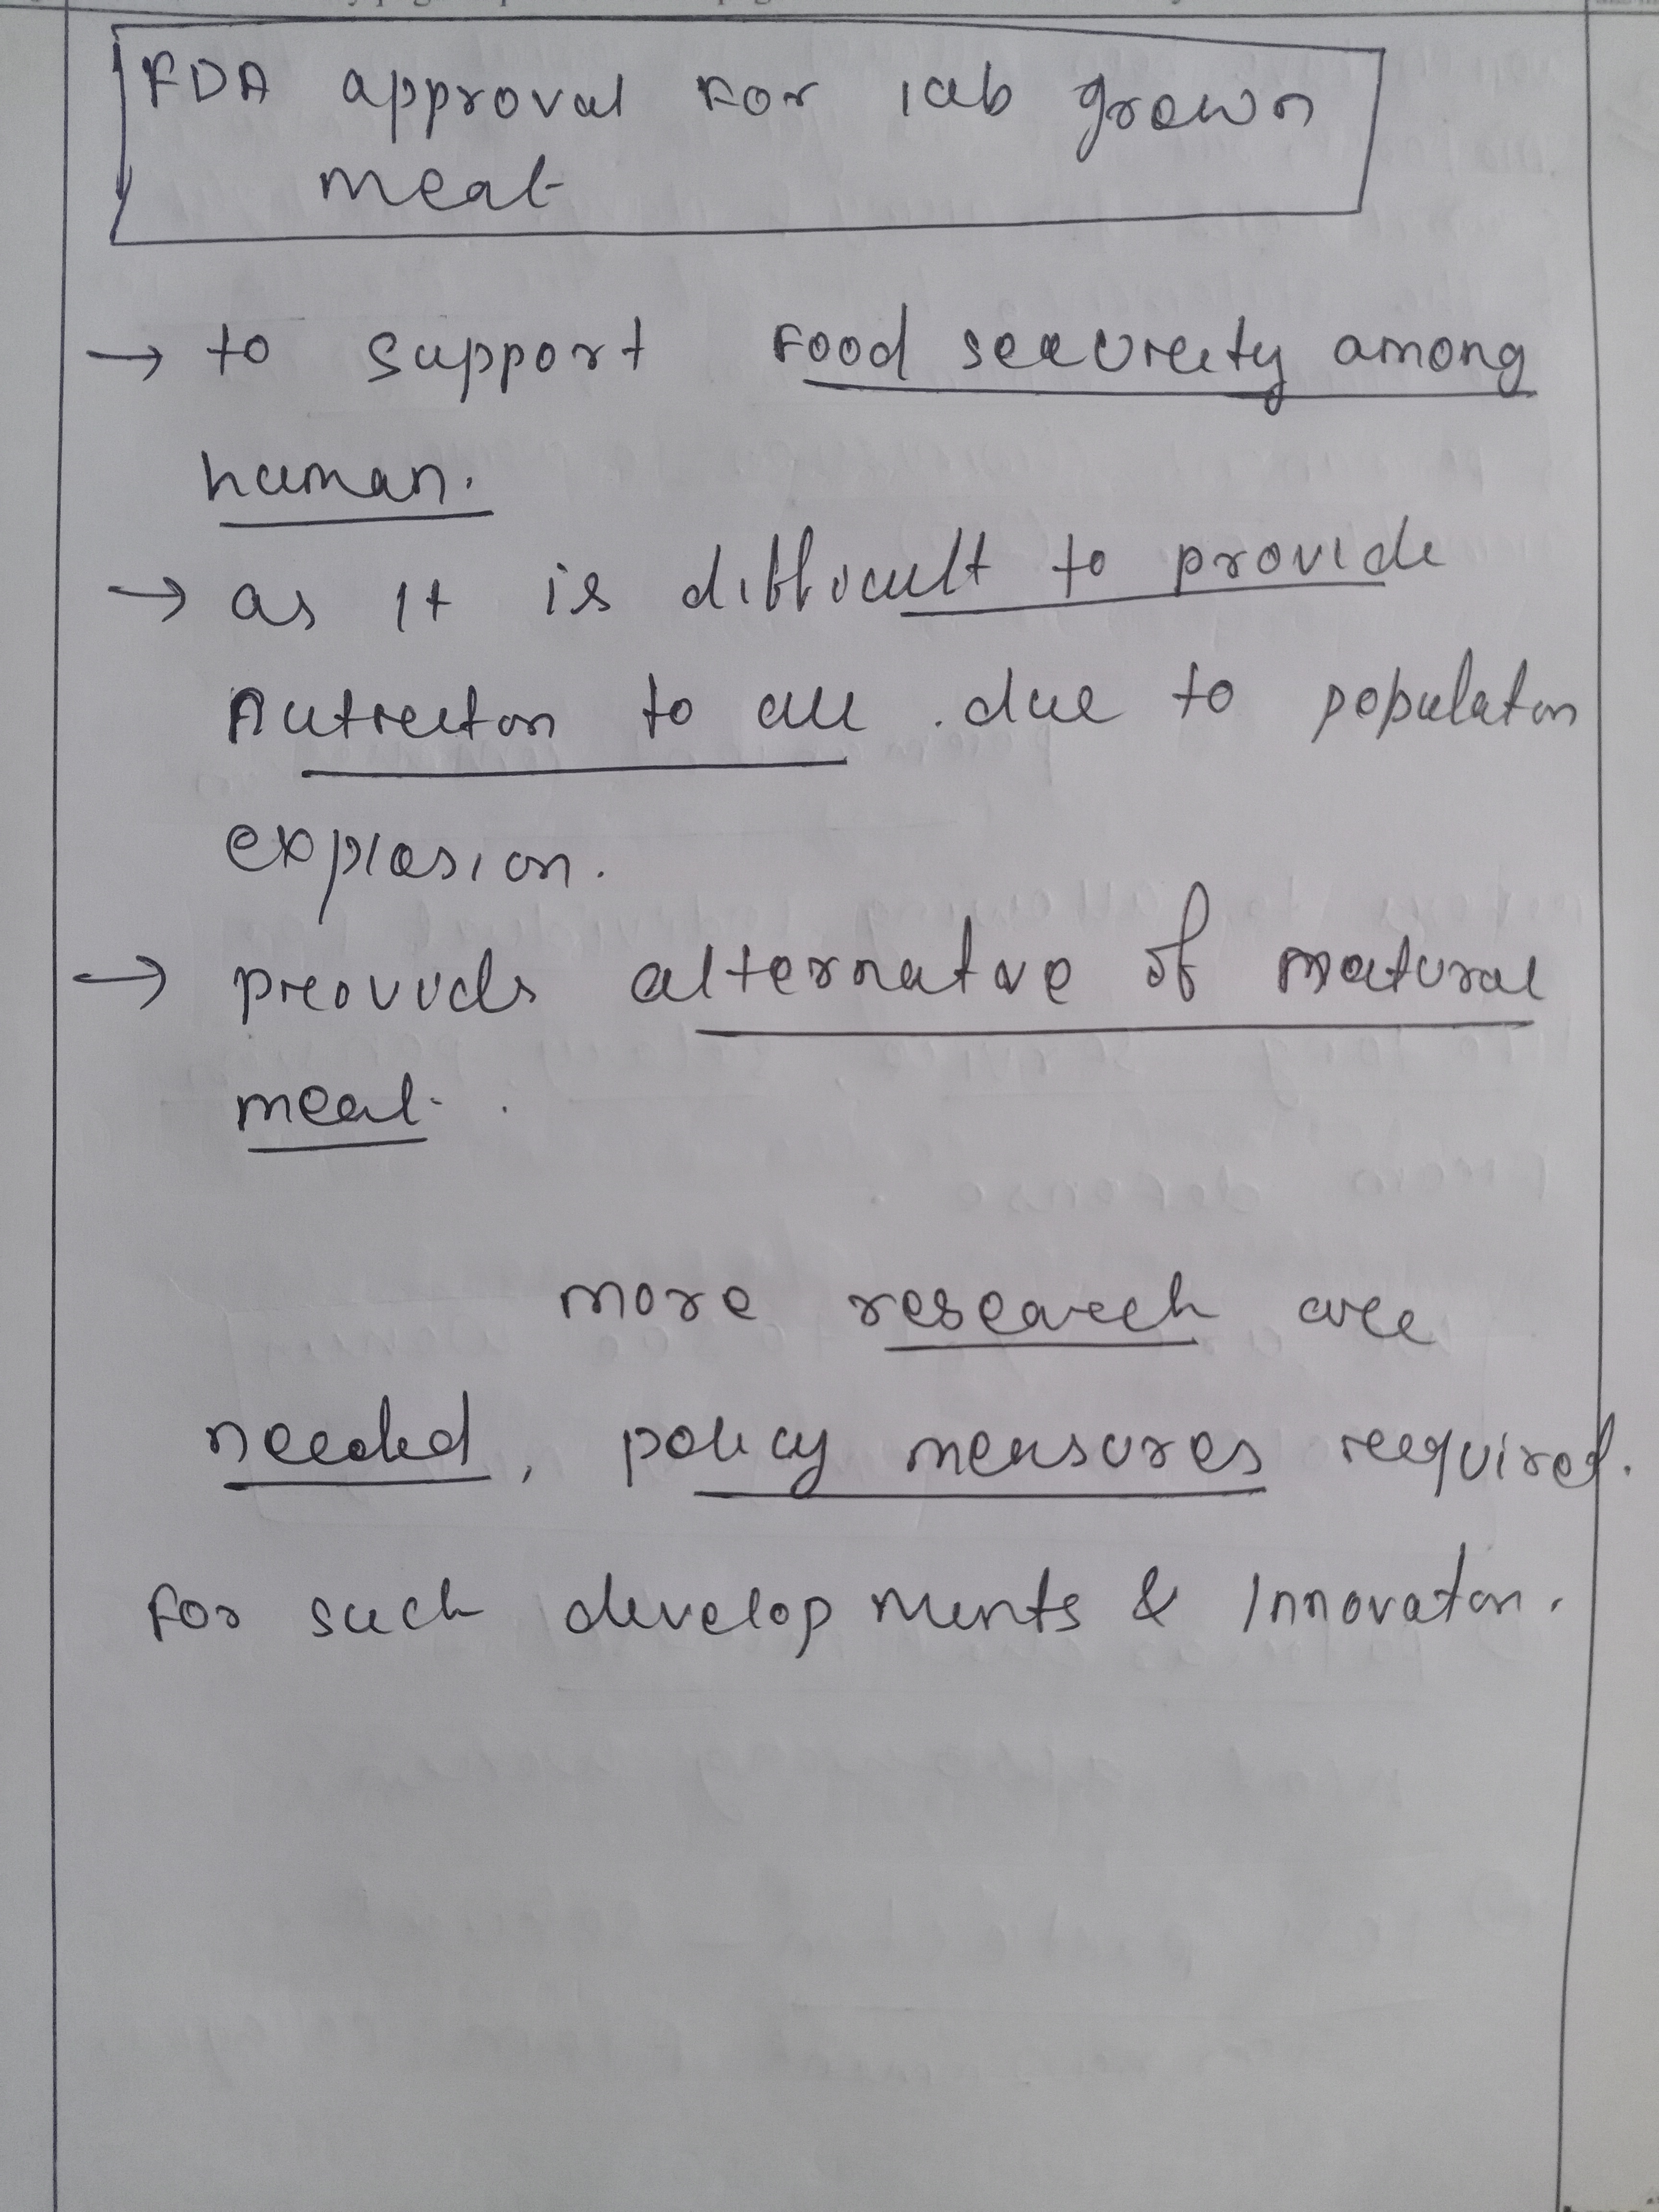 FDA approval for lab grown
meat
→ to support food security among
human.
→ as it is difficult to provide
Nutrition to all. due to population
explosion.
→ provides alternative of natural
meat.
more research are
needed, policy measures required.
for such developments & Innovation.